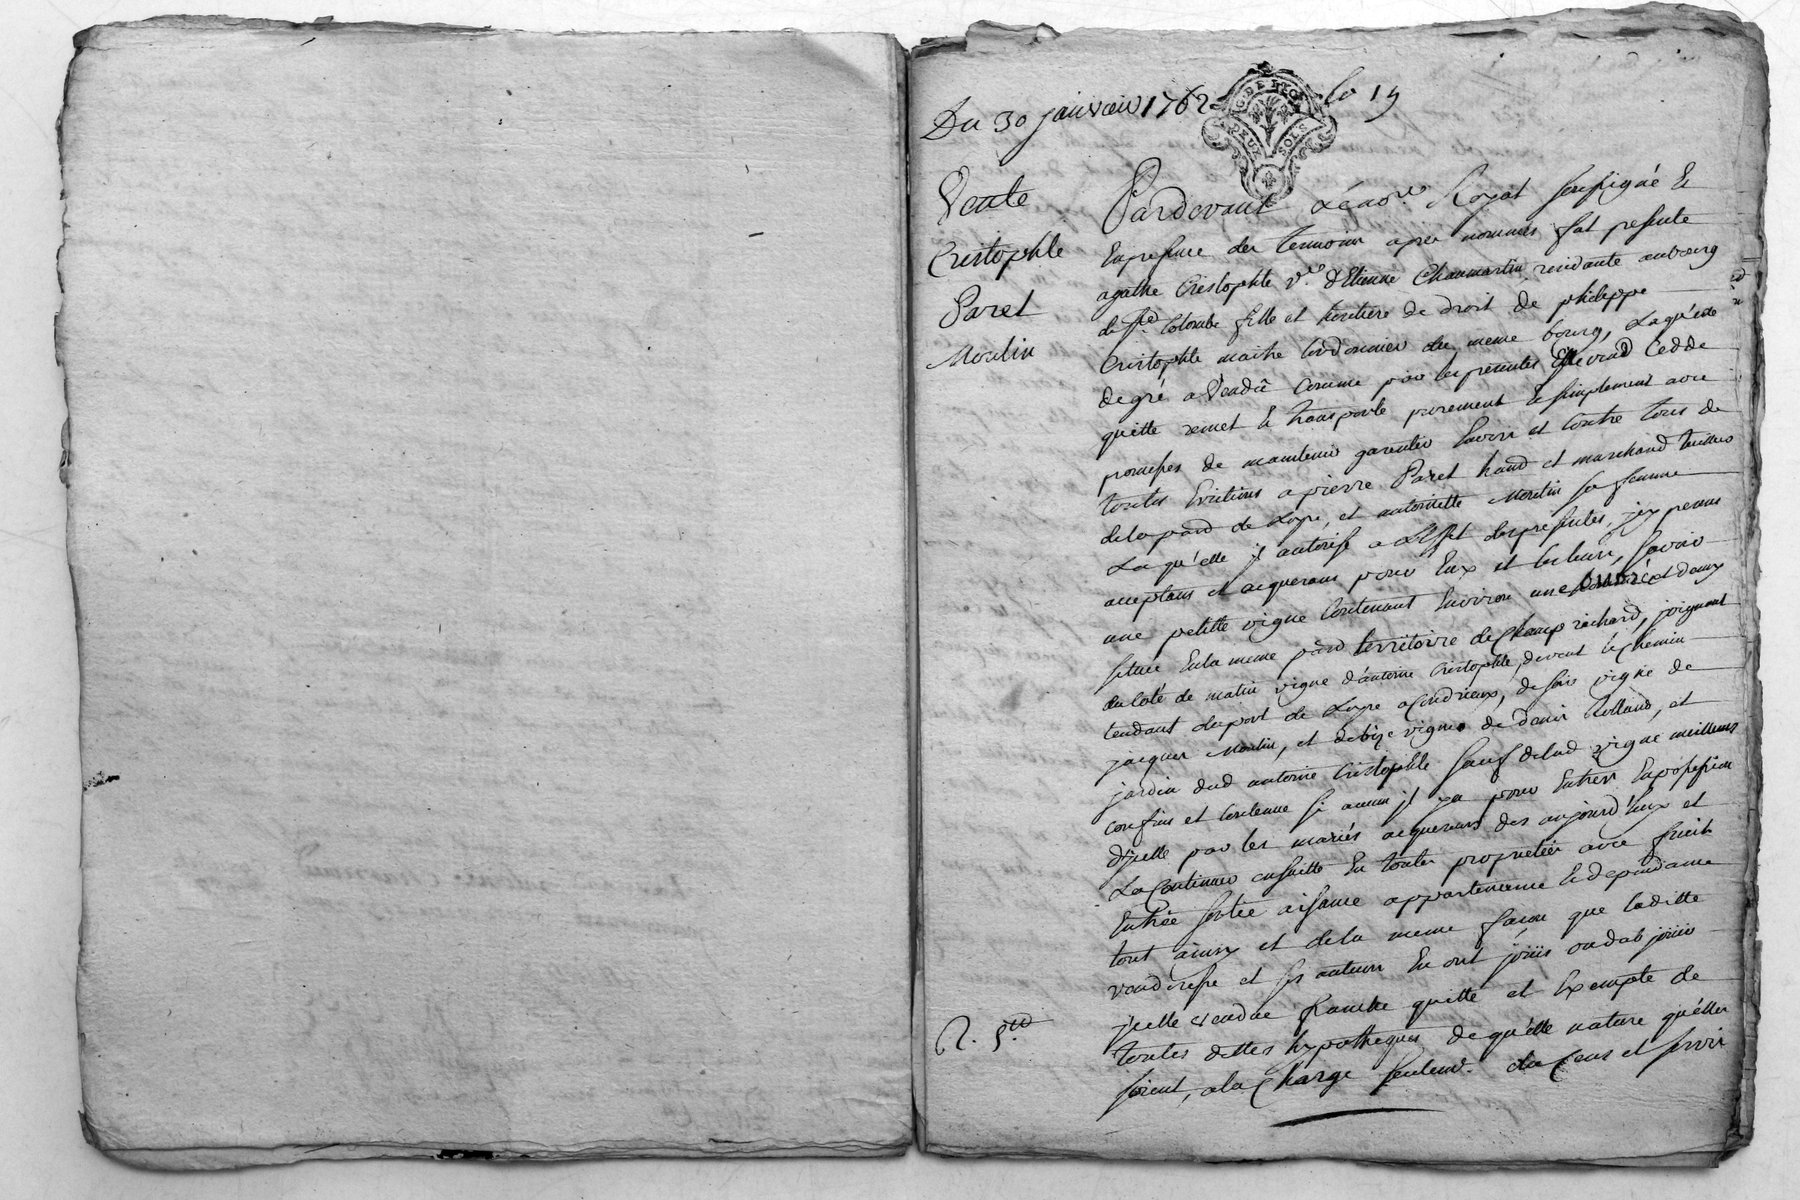 Du 30 janvier 1762
fo 19
G. DE LYON
DEUX SOLS
Vente
Cristophle
Paret
Moulin
Pardevant Lé no.re Royal soussigné Et
En presence des temoins apres nommés fut presente
agathe Cristophle v.ve d'Etienne Chaumartin residante au bourg
de S.te Colombe fille et heritiere de droit de philippe
Cristophle maitre Cordonnier du meme bourg, Laquelle
de gré a Vendû comme par les presentes Elle vend Cedde
quitte remet Et transporte purement Et simplement avec
promesses de maintenir garentir Envers et Contre tous de
toutes Evictions a pierre Paret hand et marchand
de la par.d de Loyre, et antoinette Moulin sa femme
Laqu'elle il autorise a L'effet des presentes, icy presens
acceptans et acquerans pour Eux et les leurs, savoir
une petitte vigne Contenant Environ une et demy
située En la meme par.d territoire de Champ richard, joignant
du Coté de matin vigne d'antoine Cristophle, devent le Chemin
tendant du port de Loyre a Condrieux, de soir vigne de
jacques Moulin, et de bize vigne de denis Rolland, et
jardin dud antoine Cristophle sauf de lad vigne meilleurs
confins et Contenue si aucun il y a pour Entrer En possession
d'icelle par les mariés acquereurs des aujourd'huy et
La Continuer ensuitte En toutes proprietés avec fruits
Entrée sortie aisance appartenance Et dependance
tout ainsy et de la meme façon que laditte
venderesse et ses auteurs En ont joüis ou dub joüir
jcelle vendue franche quitte et Exempte de
toutes dettes hypotheques de qu'elle nature qu'elles
soient, a la Charge seulem.t du Cens et servis